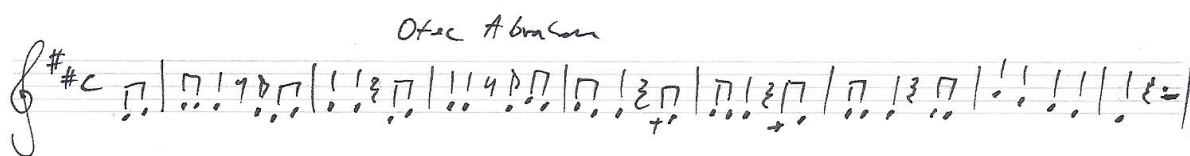 Otec Abraham
C